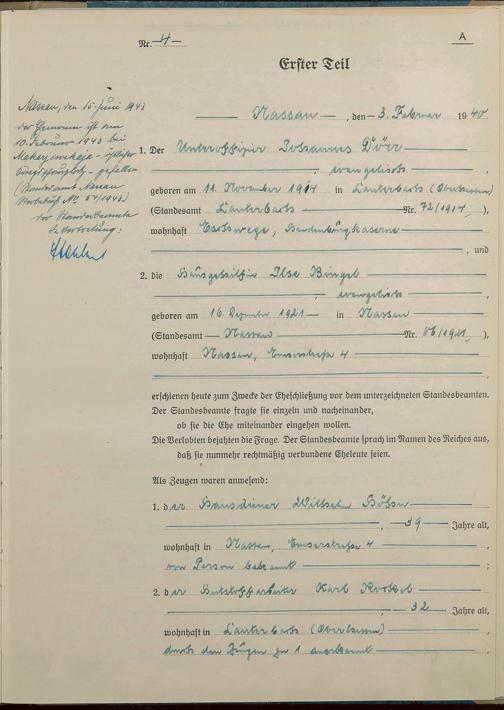 Nr. 4
A
Erster Teil
Nassau, den 3. Februar 1940
Nassau, den 15. Juni 1943
der Ehemann ist am
10. Februar 1943 bei
gefallen.
(Standesamt Nassau
Sterbebuch No 54/1943.)
der Standesbeamte
1. Der Unteroffizier Johannes Dörr
, evangelisch
geboren am 11. November 1914 in Lauterbach (Oberhessen)
(Standesamt Lauterbach Nr. 72/1914),
wohnhaft Eschwege,
, und
2. die Hausgehilfin Ilse Bingel
, evangelisch
geboren am 16. Dezember 1921 in Nassau
(Standesamt Nassau Nr. /1921),
wohnhaft Nassau, Emserstraße 4
erschienen heute zum Zwecke der Eheschließung vor dem unterzeichneten Standesbeamten.
Der Standesbeamte fragte sie einzeln und nacheinander,
ob sie die Ehe miteinander eingehen wollen.
Die Verlobten bejahten die Frage. Der Standesbeamte sprach im Namen des Reiches aus,
daß sie nunmehr rechtmäßig verbundene Eheleute seien.
Als Zeugen waren anwesend:
1. der Hausdiener Wilhelm
, 39 Jahre alt,
wohnhaft in Nassau, Emserstraße 4
von Person bekannt ;
2. der Karl
, 32 Jahre alt,
wohnhaft in Lauterbach (Oberhessen)
durch den Zeugen zu 1 anerkannt